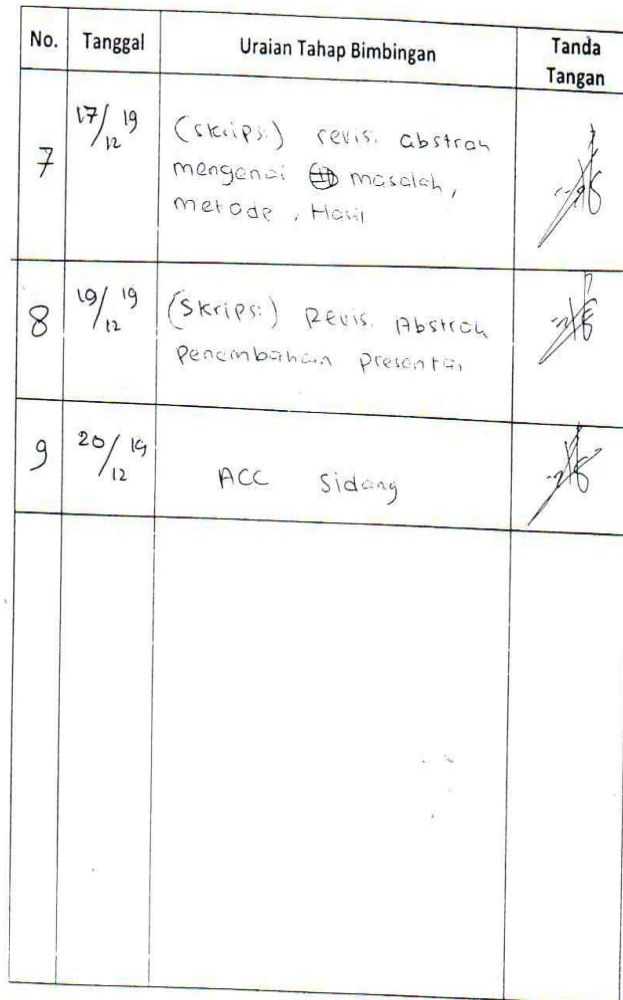 No. Tanggal Uraian Tahap Bimbingan Tanda Tangan
7 17/12 19 (skripsi) revisi abstrak
mengenai masalah,
metode, Hasil
8 19/12 19 (Skripsi) Revisi Abstrak
Penambahan presentai
9 20/12 19 ACC Sidang